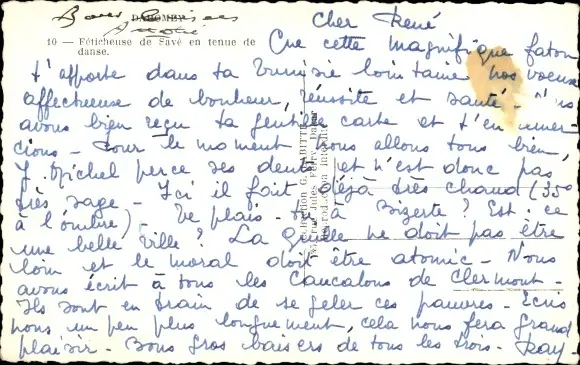 Bons baisers
André
DAHOMEY
10 — Féticheuse de Savé en tenue de
danse.
Cher René
Que cette magnifique faton
t'apporte dans ta Tunisie lointaine nos voeux
affectueuse de bonheur, réussite et santé - N/us
avons bien reçu ta gentille carte et t'en remer-
cions - Pour le moment nous allons tous bien,
J. Michel perce ses dents et n'est donc pas
très sage - Ici il fait déjà très chaud (35°
à l'ombre). Te plais-tu à Bizerte ? Est-ce
une belle ville ? La quille ne doit pas être
loin et le moral doit être atomic - Nous
avons écrit à tous les Cancalons de Clermont -
Ils sont en train de se geler ces pauvres - Ecris
nous un peu plus longuement, cela nous fera grand
plaisir - Bons gros baisers de tous les trois - Ray -